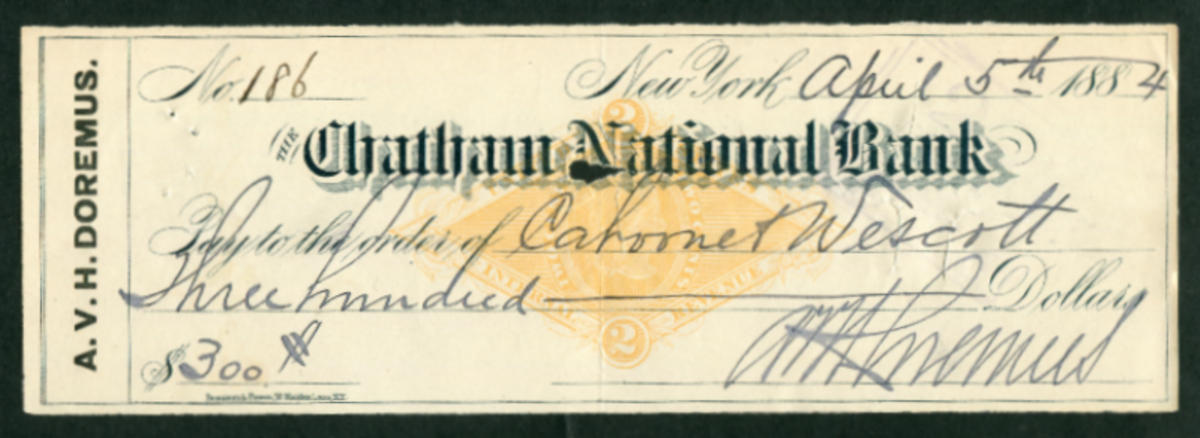 A. V. H. DOREMUS.
No. 186
New York April 5th 1884
THE Chatham National Bank
Pay to the order of Wescott
Three hundred Dollars
$300
2
INTERNAL REVENUE
2
AVH Doremus